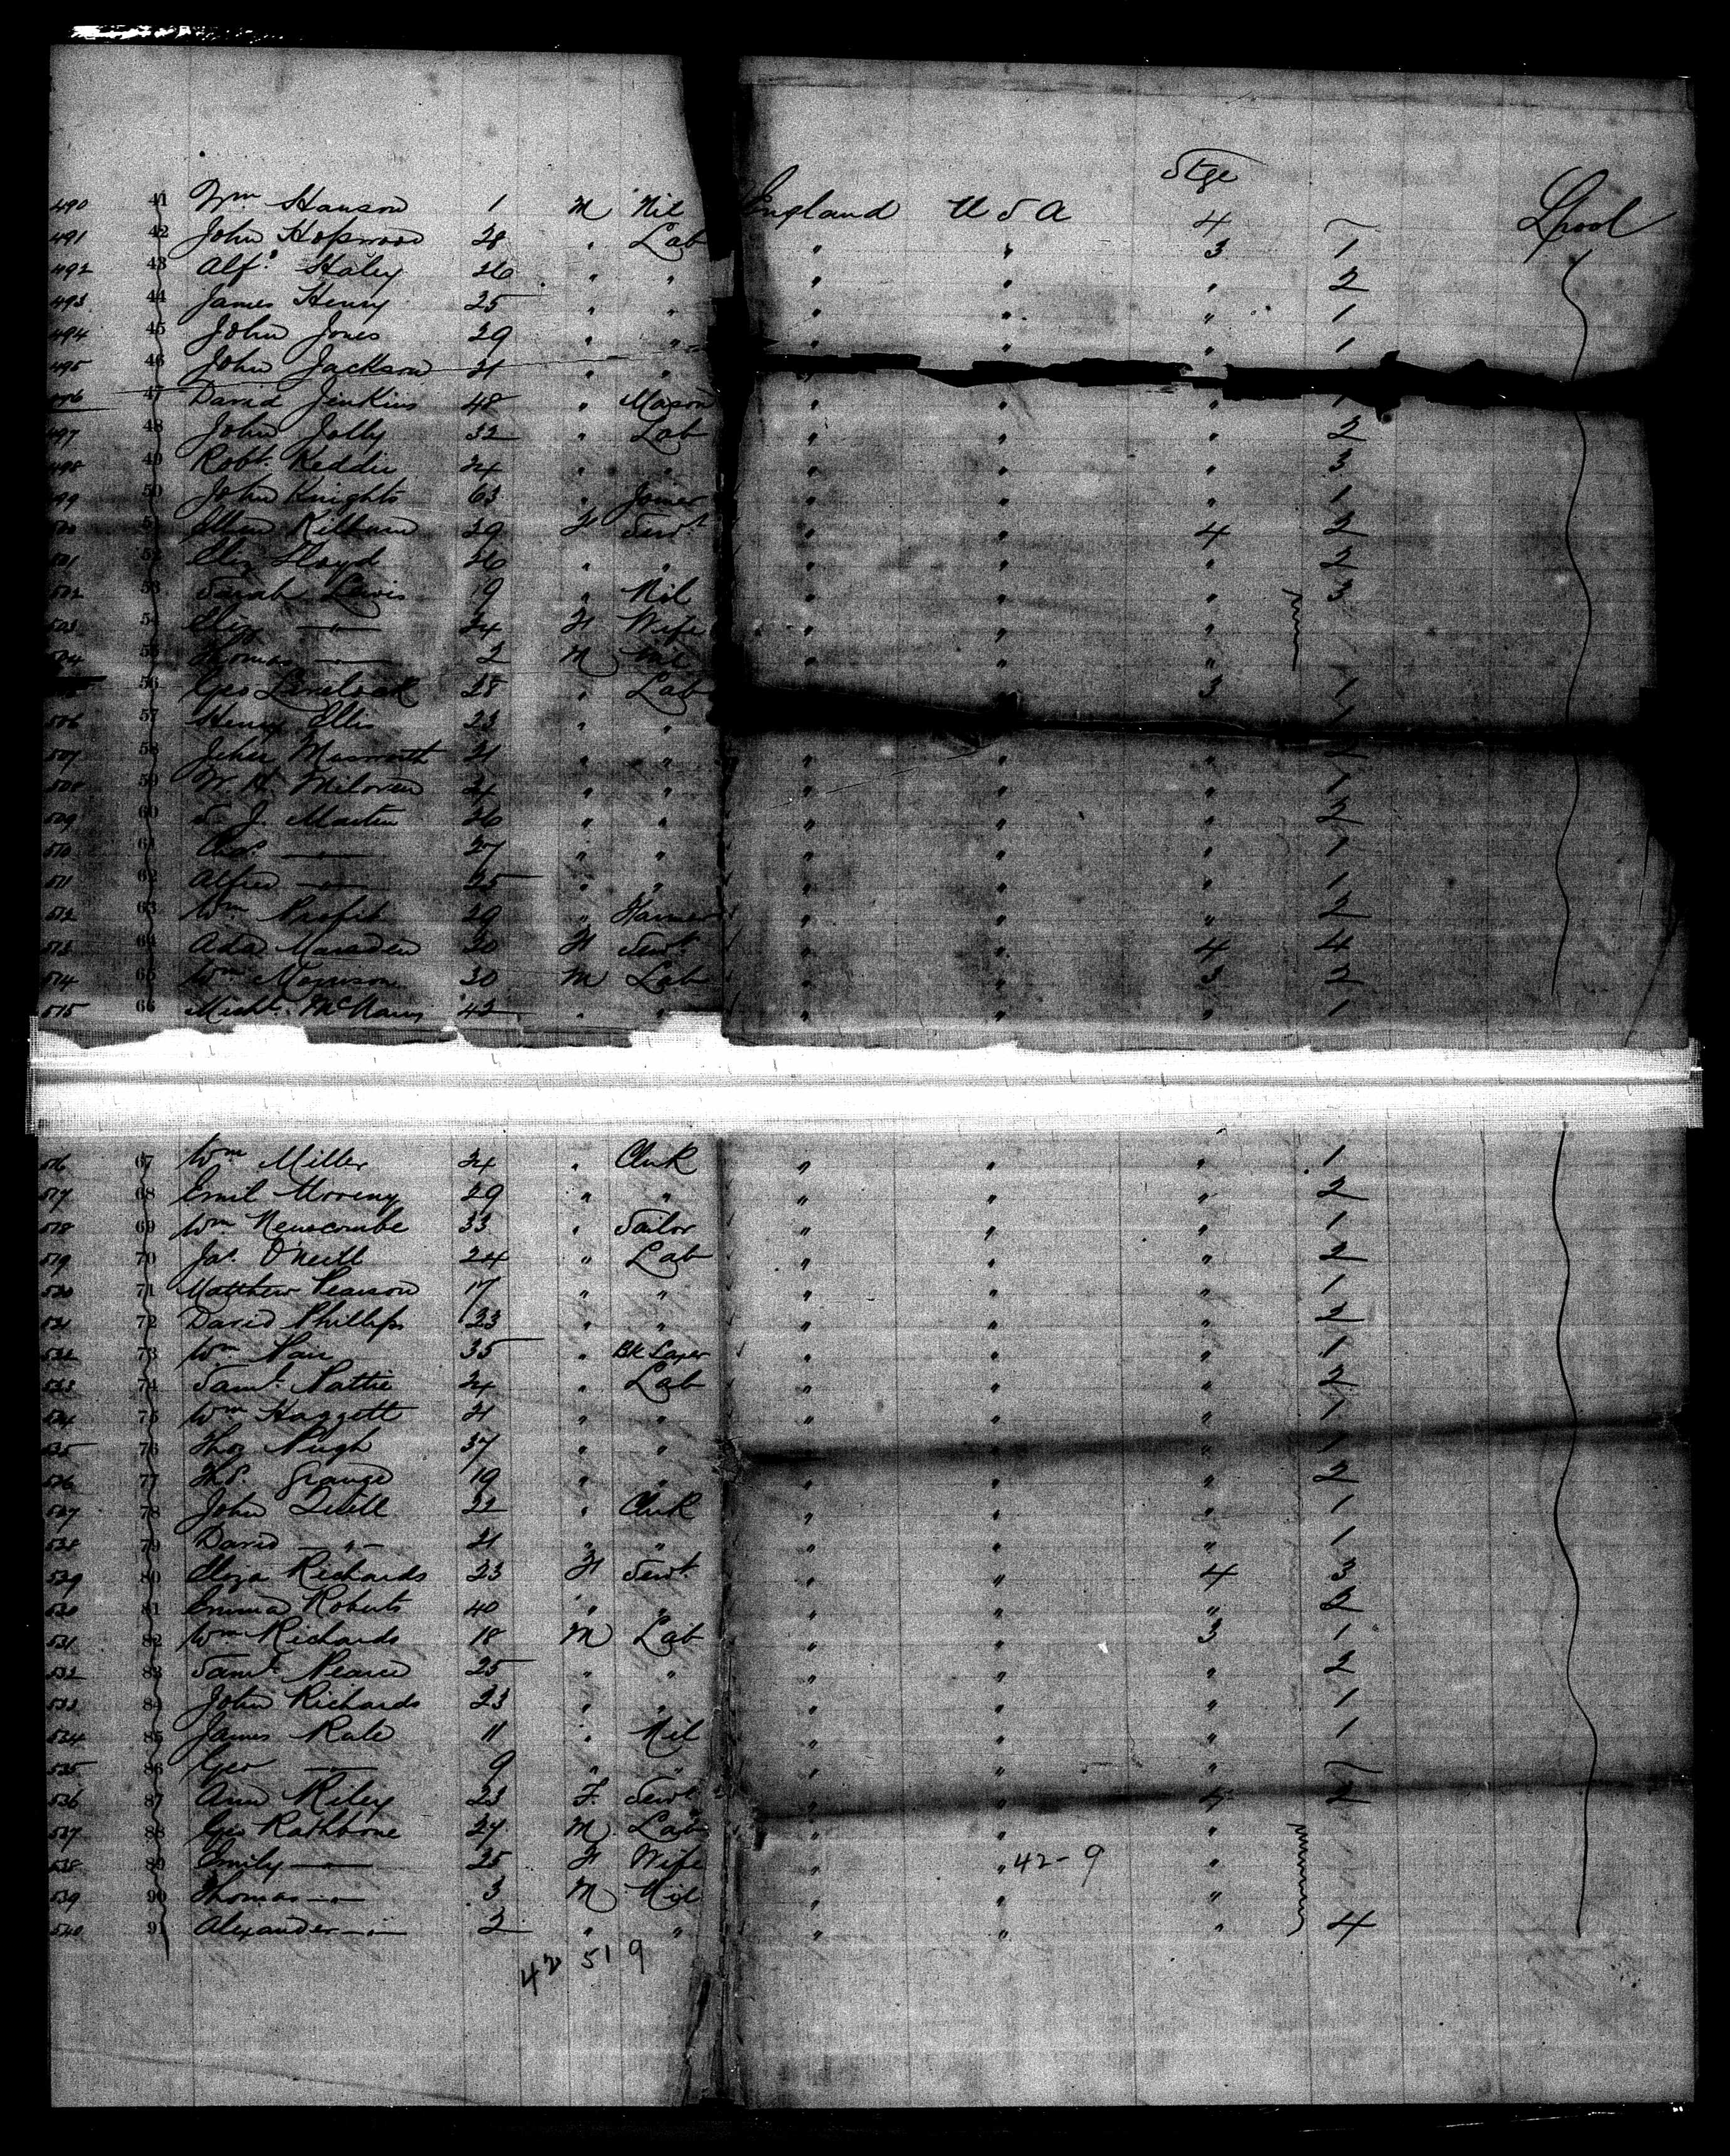 Stge
490 41 Wm Hanson 1 M Nil England U S A 4 ~ Lpool
491 42 John Hopwood 28 " Lab " " 3 1
492 43 Alfd. Staley 26 " " " " " 2
493 44 James Henry 25 " " " " " 1
494 45 John Jones 29 " " " " " 1
495 46 John Jackson 21 " "
496 47 David Jenkins 48 " Mason " " " 1
497 48 John Jolly 32 " Lab " " " 2
498 49 Robt. Keddie 24 " " " " " 3
499 50 John Knights 63 " Joiner " " " 1
500 51 Ellen 29 F Servt " " 4 2
501 52 Eliz Lloyd 26 " " " " " 2
502 53 Sarah Lewis 9 " Nil " " " 3
503 54 Eliz —"— 24 F Wife " " "
504 55 Thomas —"— 2 M Nil " " "
56 Geo 28 " Lab 3 1
506 57 Henry Ellis 23 " " 1
507 58 21 " " " " " 2
508 59 W. H. 24 " " " " " 1
509 60 S. J. Martin 26 " " " " " 2
510 61 Chas. —"— 27 " " " " " 1
511 62 Alfred —"— 25 " " " " " 1
512 63 Wm Profit 29 " Farmer " " " 2
513 64 Ada Marsden 20 F Servt " " 4 4
514 65 Wm Morrison 30 M Lab " " 3 2
515 66 Michl. 42 " " " " " 1
516 67 Wm Miller 24 " Clerk " " " 1
517 68 Emil 29 " " " " " 2
518 69 Wm Newcombe 33 " Sailor " " " 1
519 70 Jas. O'Neill 24 " Lab " " " 2
520 71 Matthew Pearson 17 " " " " " 1
521 72 David Phillips 23 " " " " " 2
522 73 Wm 35 " Bk Layer " " " 1
523 74 Saml. 24 " Lab " " " 2
524 75 Wm Haggett 21 " " " " " 1
525 76 Thos Pugh 37 " " " 1
526 77 Thos. Grange 19 " " " " " 2
527 78 John Quill 22 " Clerk " " " 1
528 79 David —"— 21 " " " " " 1
529 80 Eliza Richards 23 F Servt. " " 4 3
530 81 Emma Roberts 40 " " " " " 2
531 82 Wm Richards 18 M Lab " " 3 1
532 83 Saml. Pearce 25 " " " " " 2
533 84 John Richards 23 " " " " " 1
534 85 James Rule 11 " Nil " " " 1
535 86 Geo —"— 9 " " " " "
536 87 Ann Riley 23 F. Servt " " 4 2
537 88 Geo Rathbone 27 M Lab " "
538 89 Emily —"— 25 F Wife " " 42-9 "
539 90 Thomas —"— 3 M Nil " " "
540 91 Alexander —"— 2 " " " " " 4
42 51 9